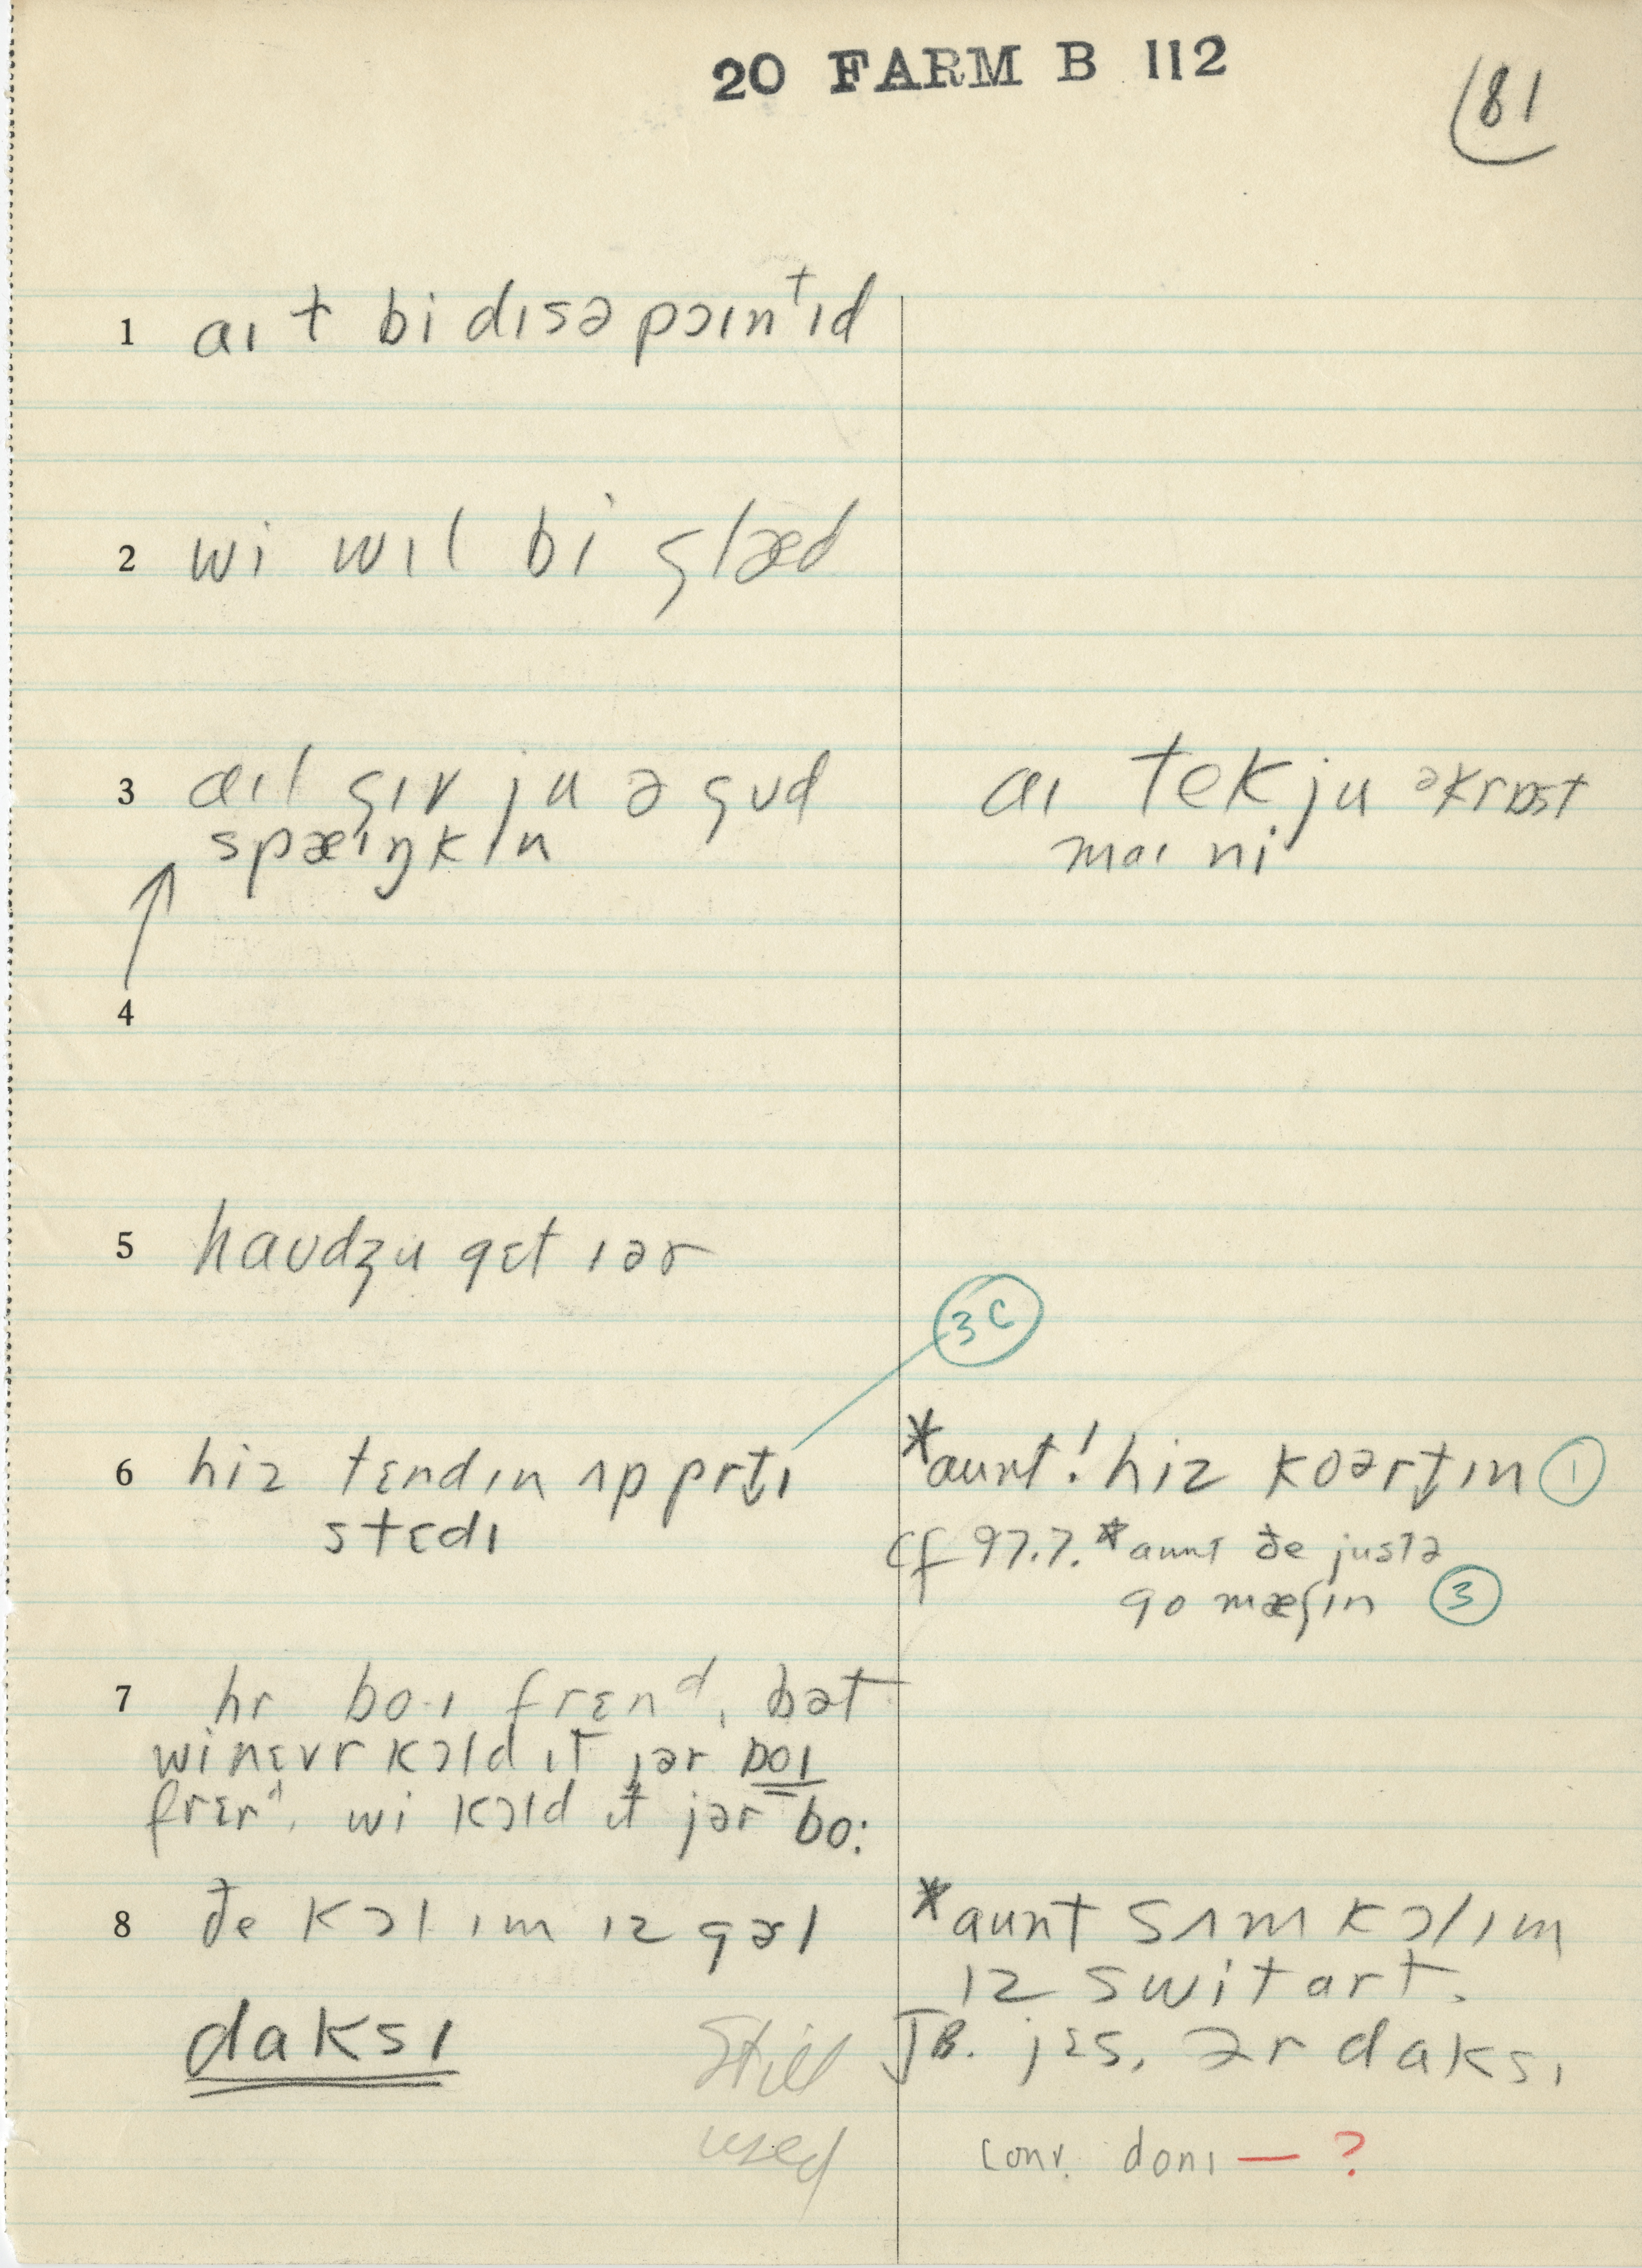 20 FARM B 112
81
1 aɪ t bi dɪsəpɔɪnᵗɪd
2 wi wɪl bi glæd
3 aɪl gɪv ju ə gʊd
spæɪŋkɪn
aɪ tek ju əkrɒst
maɪ ni
4
5 haʊdʒu gɛt ɪər
3C
6 hiz tɛndɪn ʌp prt̬ɪ
stɛdɪ
*aunt! hiz koərt̬ɪn 1
cf 97.7. *aunt ðe justə
go mæʃɪn 3
7 hr bo·ɪ frɛnᵈ, bət
winɛvr kɔld ɪt jər boɪ
frɛnᵈ, wi kɔld ɪt jər bo:
8 ðe kɔl ɪm ɪz gəl
*aunt sʌm kɔl ɪm
ɪz switart.
daksɪ
Still
used
JB. jɛs, ər daksɪ
conv. donɪ — ?